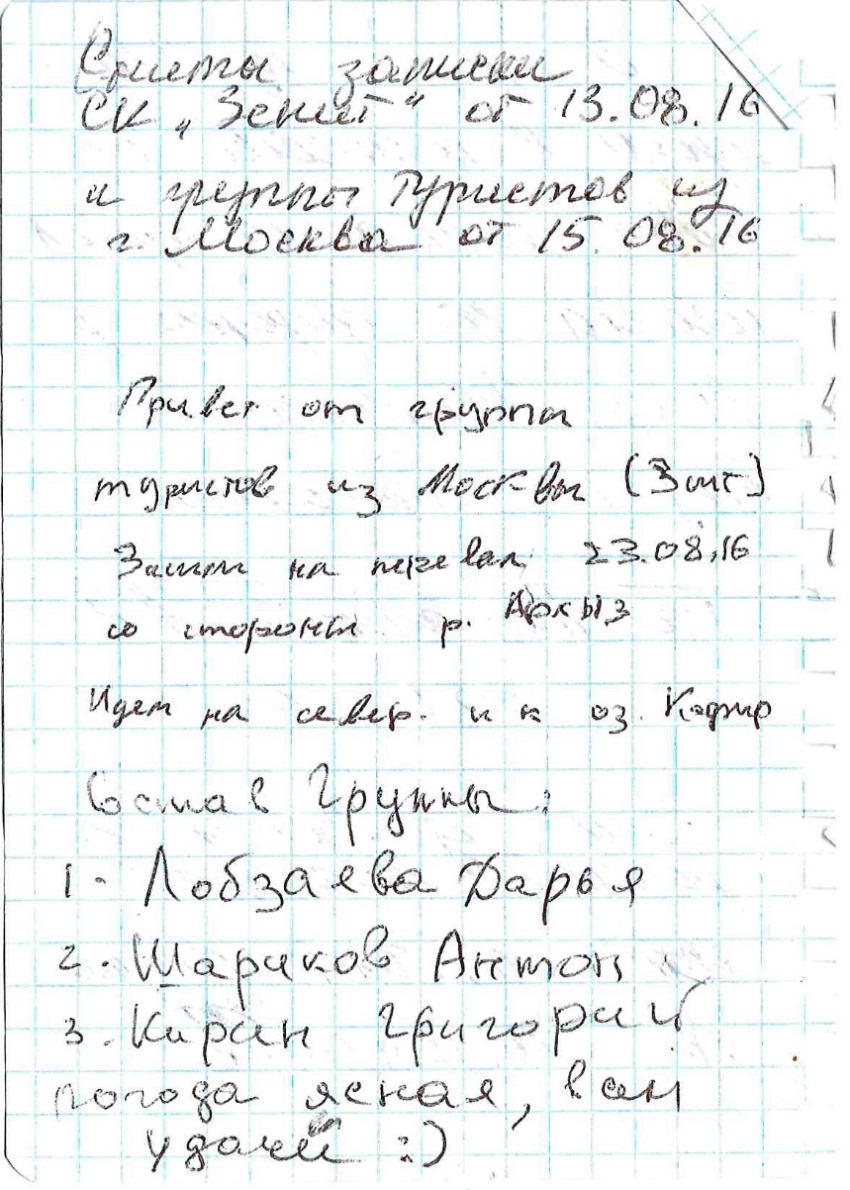 Сняты записки
СК „Зенит“ от 13.08.16
и группы туристов из
г. Москва от 15.08.16
Привет от группы
туристов из Москвы (3 шт)
Зашли на перевал 23.08.16
со стороны р. Архыз
Идем на север. и к оз. Кафир
Состав группы:
1. Лобзаева Дарья
2. Шариков Антон
3. Киран Григорий
погода ясная, вам
удачи :)